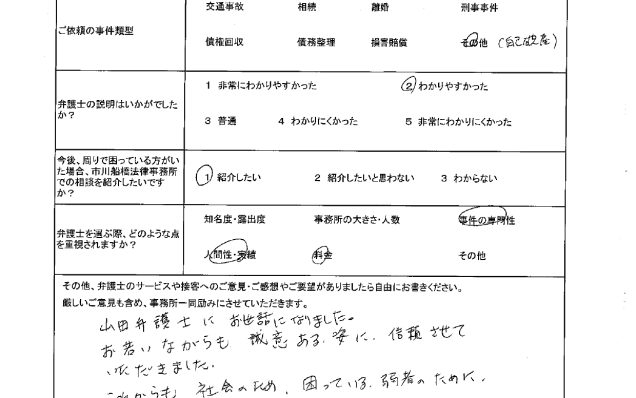 交通事故 相続 離婚 刑事事件
ご依頼の事件類型
債権回収 債務整理 損害賠償 その他 (自己破産)
1 非常にわかりやすかった 2 わかりやすかった
弁護士の説明はいかがでした
か?
3 普通 4 わかりにくかった 5 非常にわかりにくかった
今後、周りで困っている方がい
た場合、市川船橋法律事務所
での相談を紹介したいです
か?
1 紹介したい 2 紹介したいと思わない 3 わからない
知名度・露出度 事務所の大きさ・人数 事件の専門性
弁護士を選ぶ際、どのような点
を重視されますか?
人間性・実績 料金 その他
その他、弁護士のサービスや接客へのご意見・ご感想やご要望がありましたら自由にお書きください。
厳しいご意見も含め、事務所一同励みにさせていただきます。
山田弁護士にお世話になりました。
お若いながらも誠意ある姿に、信頼させて
いただきました。
これからも、社会のため、困っている弱者のために、